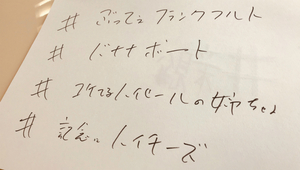 # ぶってぇフランクフルト
# バナナボート
# コケてるハイヒールの姉ちゃん
# 記念にハイチーズ